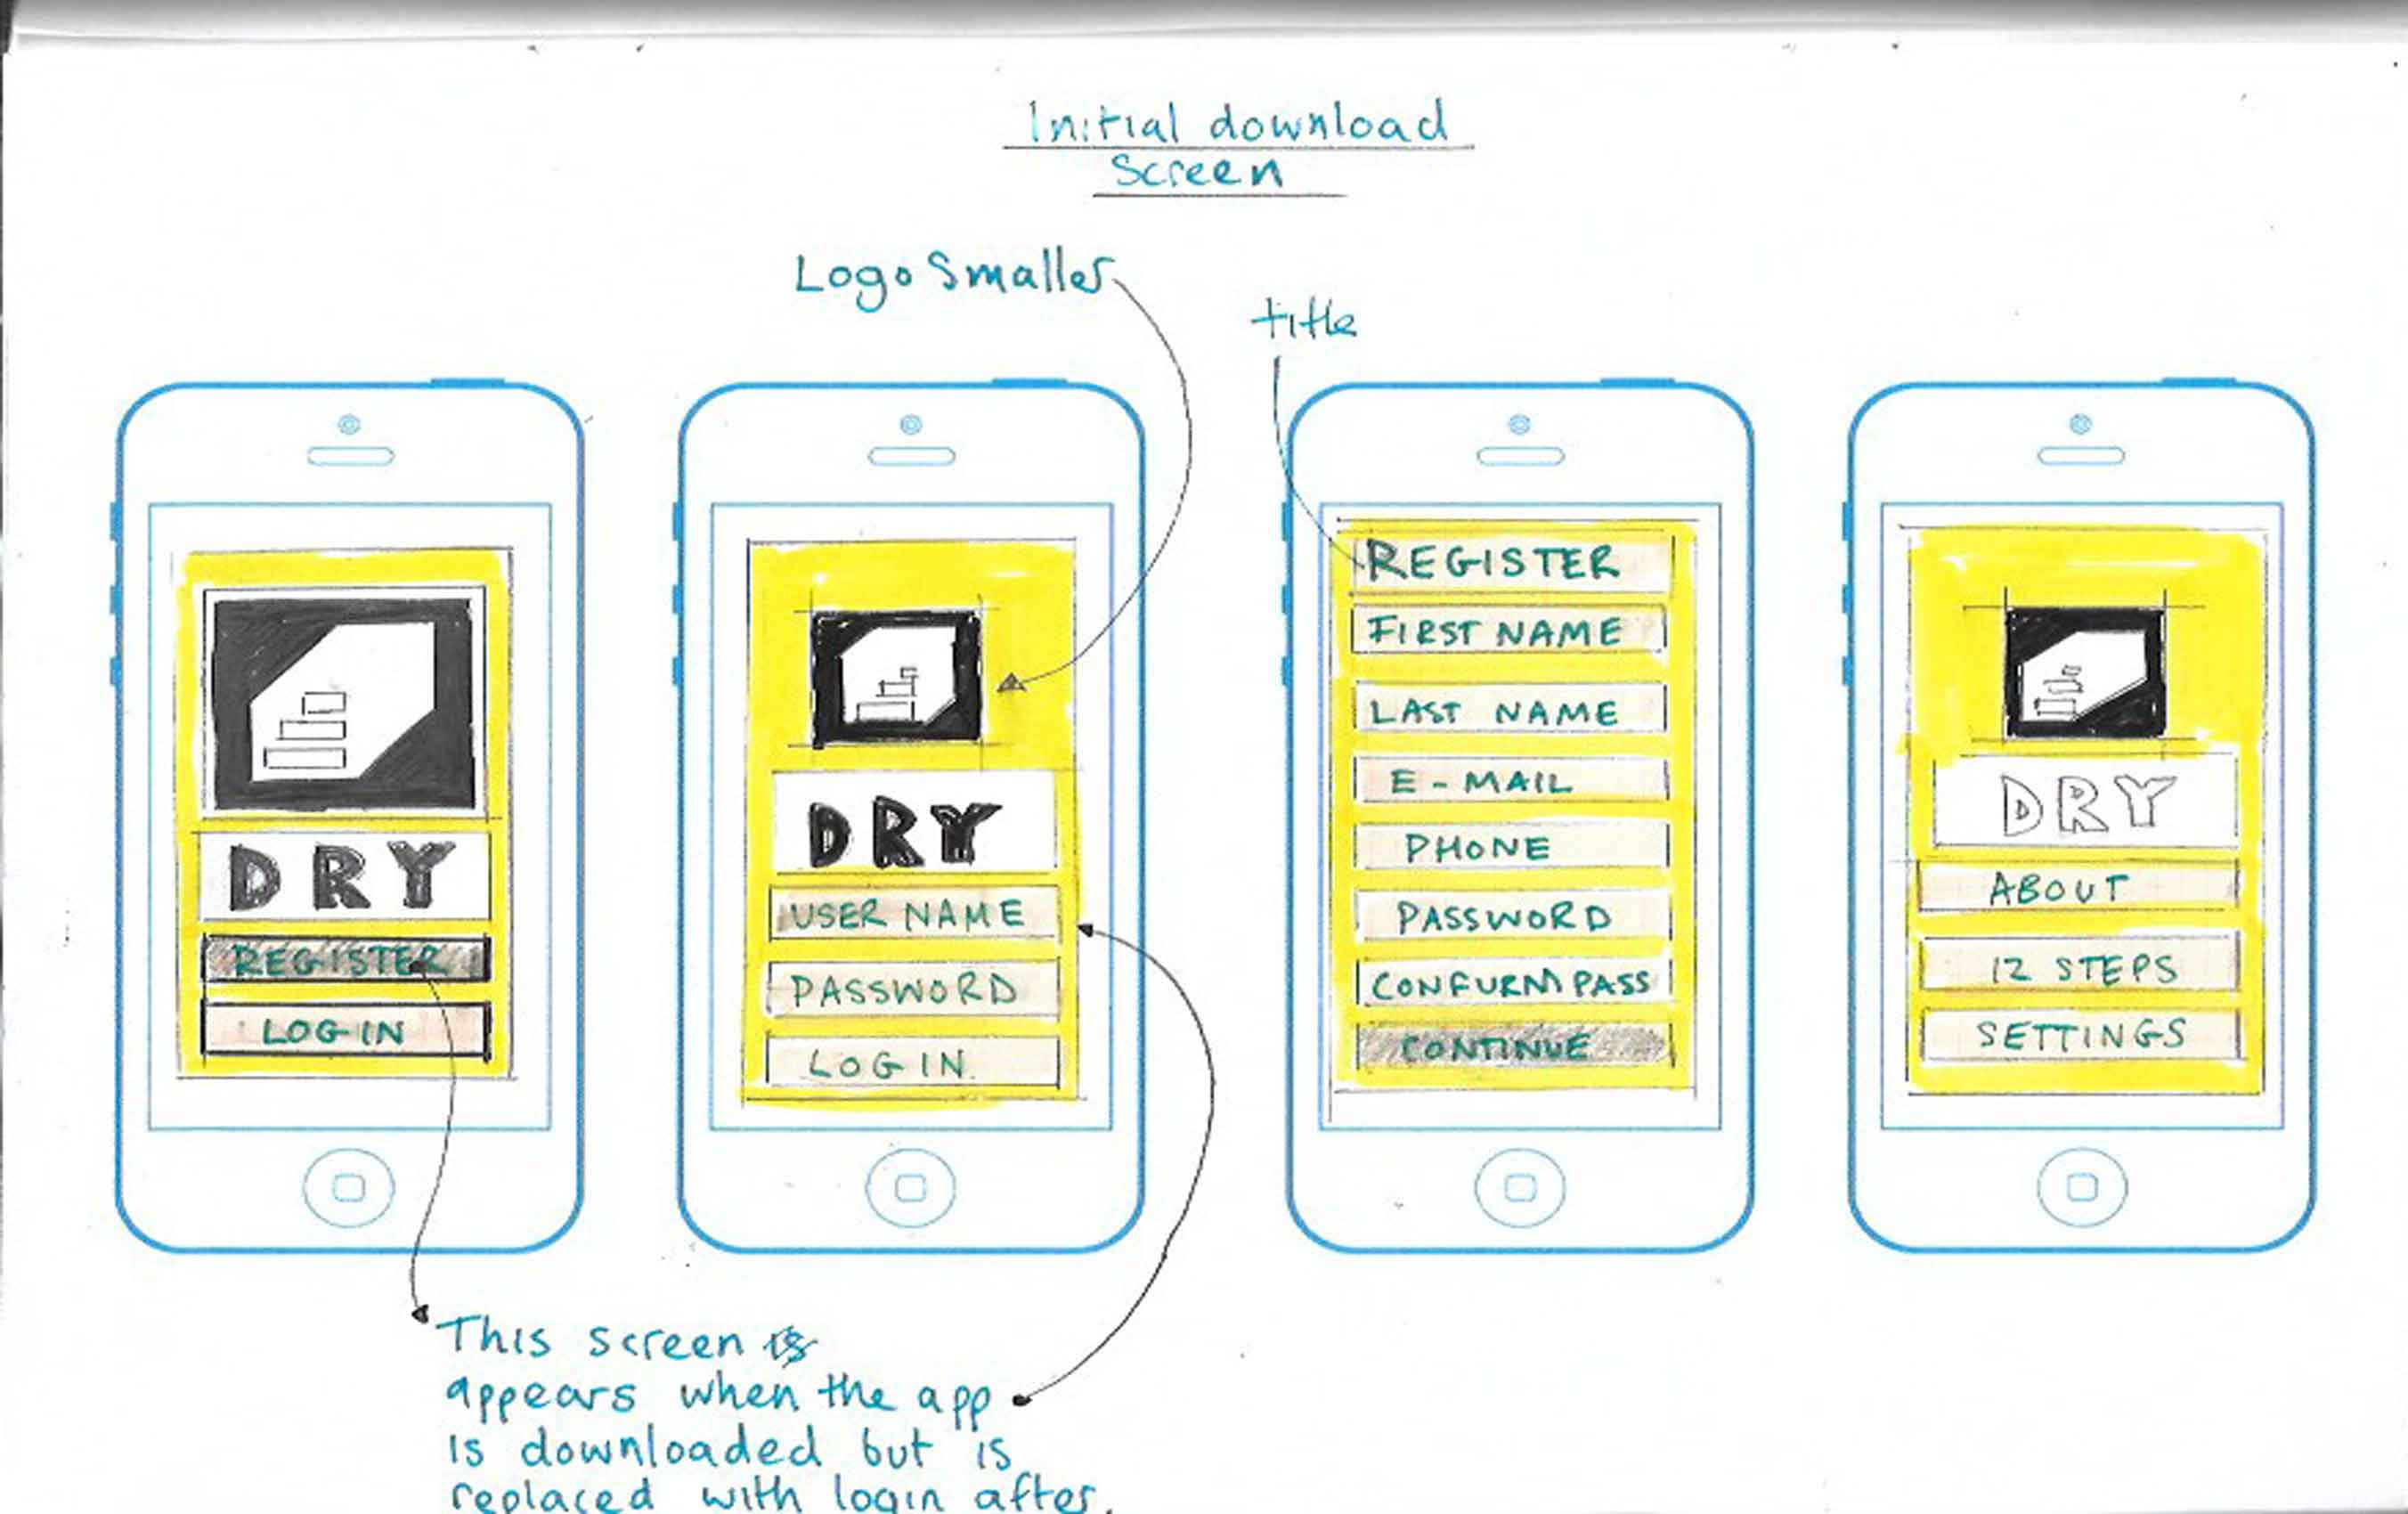 Initial download
Screen
Logo Smaller
title
DRY
REGISTER
LOGIN
DRY
USER NAME
PASSWORD
LOGIN
REGISTER
FIRST NAME
LAST NAME
E-MAIL
PHONE
PASSWORD
CONFURM PASS
CONTINUE
DRY
ABOUT
12 STEPS
SETTINGS
This screen is
appears when the app
is downloaded but is
replaced with login after.